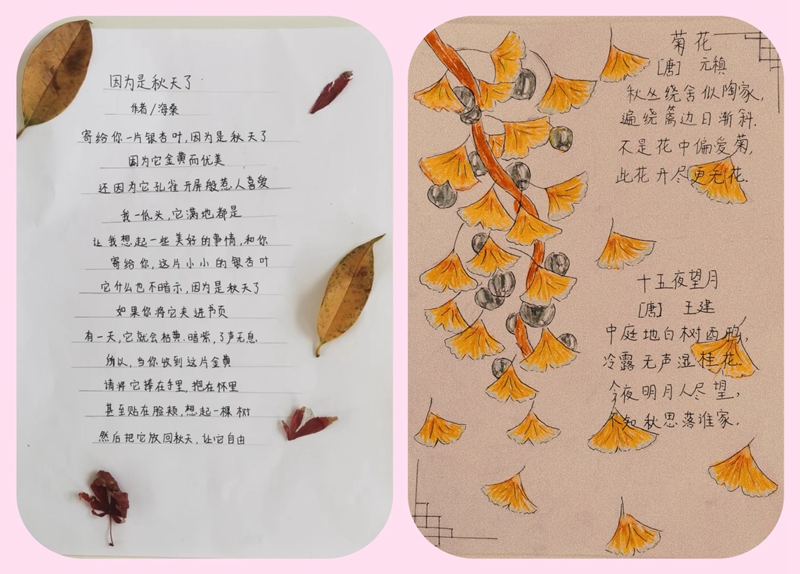 因为是秋天了
作者/海桑
寄给你一片银杏叶,因为是秋天了
因为它金黄而优美
还因为它孔雀开屏般惹人喜爱
我一低头,它满地都是
让我想起一些美好的事情,和你
寄给你,这片小小的银杏叶
它什么也不暗示,因为是秋天了
如果你将它夹进书页
有一天,它就会枯黄、暗紫,了声无息
所以,当你收到这片金黄
请将它捧在手里,抱在怀里
甚至贴在脸颊,想起一棵树
然后把它放回秋天,让它自由
菊花
[唐] 元稹
秋丛绕舍似陶家,
遍绕篱边日渐斜.
不是花中偏爱菊,
此花开尽更无花.
十五夜望月
[唐] 王建
中庭地白树栖鸦,
冷露无声湿桂花.
今夜明月人尽望,
不知秋思落谁家.